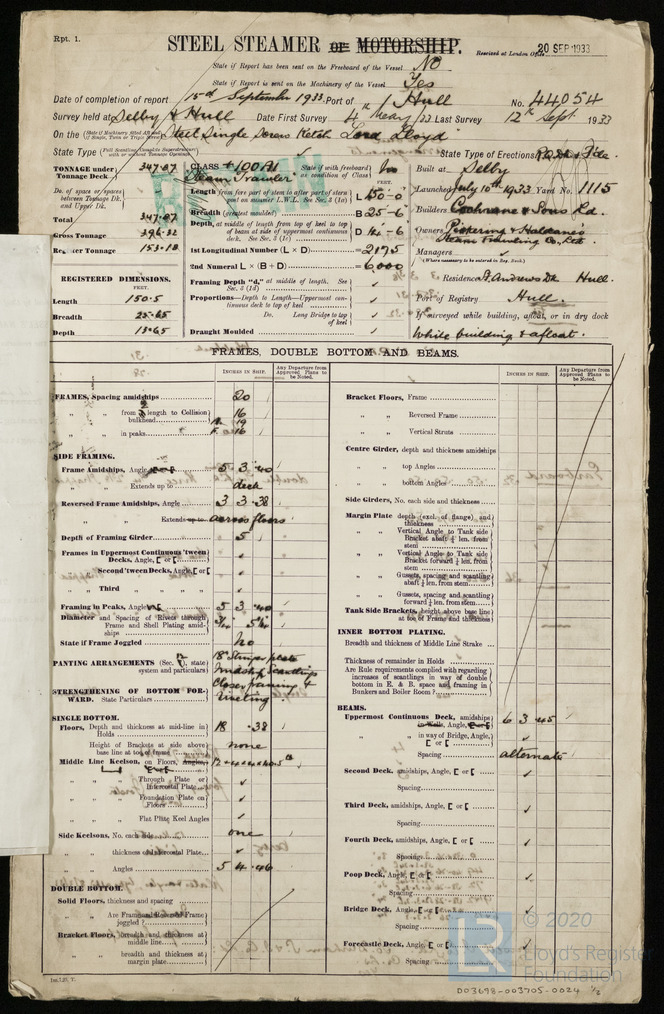 Rpt. 1.
STEEL STEAMER or MOTORSHIP.
Received at London Office 20 SEP 1933
State if Report has been sent on the Freeboard of the Vessel No
State if Report is sent on the Machinery of the Vessel Yes
Date of completion of report 15th September 1933. Port of Hull No. 44054
Survey held at Selby & Hull Date First Survey 4 May /33 Last Survey 12th Sept. 1933
On the Steel Single Screw Ketch Lord Lloyd
State Type State Type of Erections
TONNAGE under Tonnage Deck 347.07
Do. of space or spaces between Tonnage Dk. and Upper Dk.
Total 347.07
Gross Tonnage 396.32
Register Tonnage 153.18
REGISTERED DIMENSIONS.
FEET.
Length 150.5
Breadth 25.65
Depth 13.65
CLASS +100A1 State if with freeboard as condition of Class No
Steam Trawler
FEET.
Length from fore part of stem to after part of stern post on summer L.W.L. See Sec. 3 (1a) L 150-0
Breadth (greatest moulded) B 25-6
Depth, at middle of length from top of keel to top of beam at side of uppermost continuous deck. See Sec. 3 (1c) D 14-6
1st Longitudinal Number (L × D) = 2175
2nd Numeral L × (B + D) = 6000
Framing Depth "d," at middle of length. See Sec. 3 (1d)
Proportions—Depth to Length—Uppermost continuous deck to top of keel
Do. Long Bridge to top of keel
Draught Moulded
Built at Selby
Launched July 10th 1933 Yard No. 1115
Builders Cochrane & Sons Ld.
Owners Pickering & Haldane's Steam Trawling Co., Ltd.
Managers
(Where necessary to be entered in Reg. Book.)
Residence St Andrews Dk Hull.
Port of Registry Hull.
If surveyed while building, afloat, or in dry dock
While building & afloat.
FRAMES, DOUBLE BOTTOM AND BEAMS.
INCHES IN SHIP.
Any Departure from Approved Plans to be Noted.
INCHES IN SHIP.
Any Departure from Approved Plans to be Noted.
FRAMES, Spacing amidships 20
" " from length to Collision bulkhead 16
" " in peaks A. 19 F. 16
SIDE FRAMING.
Frame Amidships, Angle 5 3 .40
" " Extends up to deck
Reversed Frame Amidships, Angle 3 3 .38
" " Extends up to across floors
Depth of Framing Girder 5
Frames in Uppermost Continuous 'tween Decks, Angle, [ or [
" Second 'tween Decks, Angle, [ or [
" Third " "
Framing in Peaks, Angle 5 3 .40
Diameter and Spacing of Rivets through Frame and Shell Plating amidships 3/4 5 1/4
State if Frame Joggled No
PANTING ARRANGEMENTS (Sec. , state) system and particulars
18" Stringer plate
Midship Scantlings
STRENGTHENING OF BOTTOM FORWARD. State Particulars
Closer framing & riveting
SINGLE BOTTOM.
Floors, Depth and thickness at mid-line in Holds 18 .38
Height of Brackets at side above base line at toe of frame none
Middle Line Keelson, on Floors, Angles,
" " Through Plate or Intercostal Plate
" " Foundation Plate on Floors
" " Flat Plate Keel Angles
Side Keelsons, No. each side one
" thickness of Intercostal Plate
" Angles 5 4 .46
DOUBLE BOTTOM.
Solid Floors, thickness and spacing
" Are Frame and Reversed Frame joggled?
Bracket Floors, breadth and thickness at middle line
" breadth and thickness at margin plate
Bracket Floors, Frame
" " Reversed Frame
" " Vertical Struts
Centre Girder, depth and thickness amidships
" " top Angles
" " bottom Angles
Side Girders, No. each side and thickness
Margin Plate depth (excl. of flange) and thickness
" " Vertical Angle to Tank side Bracket abaft ¼ len. from stem
" " Vertical Angle to Tank side Bracket forward ¼ len. from stem
" " Gussets, spacing and scantling abaft ¼ len. from stem
" " Gussets, spacing and scantling forward ¼ len. from stem
Tank Side Brackets, height above base line at toe of Frame and thickness
INNER BOTTOM PLATING.
Breadth and thickness of Middle Line Strake
Thickness of remainder in Holds
Are Rule requirements complied with regarding increases of scantlings in way of double bottom in E. & B. space and framing in Bunkers and Boiler Room?
BEAMS.
Uppermost Continuous Deck, amidships in Wells, Angle, 6 3 .45
" " in way of Bridge, Angle, [ or [
Spacing alternate
Second Deck, amidships, Angle, [ or [
Spacing
Third Deck, amidships, Angle, [ or [
Spacing
Fourth Deck, amidships, Angle, [ or [
Spacing
Poop Deck, Angle, [ or [
Spacing
Bridge Deck, Angle, [ or [
Spacing
Forecastle Deck, Angle, [ or [
Spacing
© 2020
Lloyd's Register
Foundation
DO3698-003705-0024 1/2